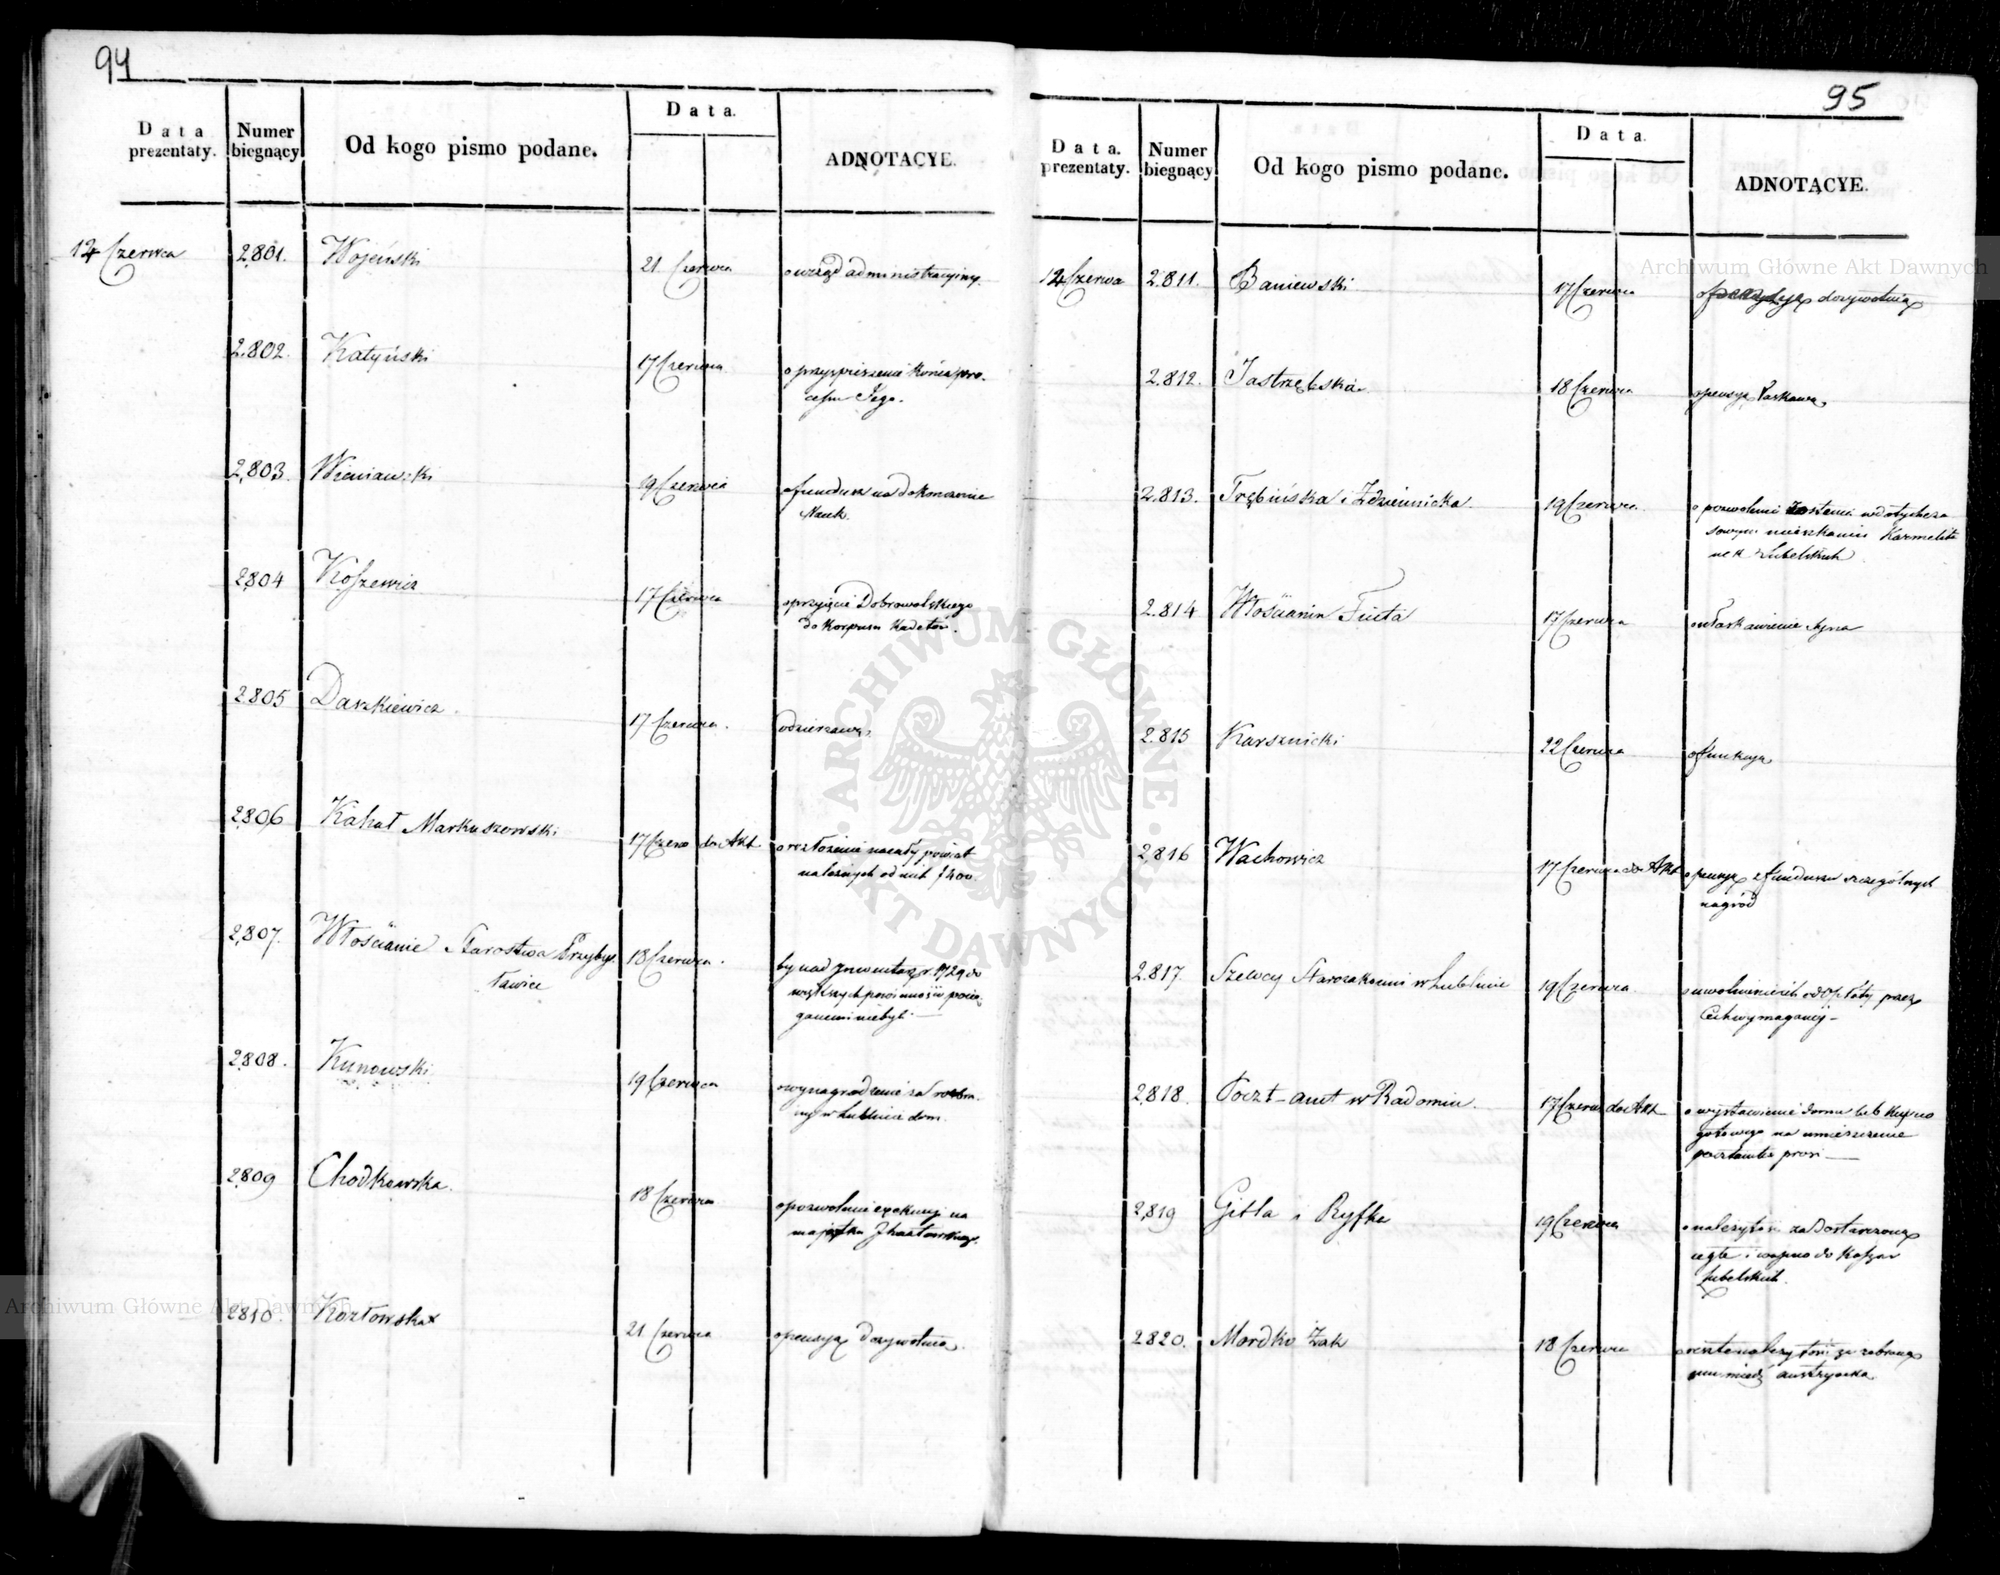 94
Data prezentaty.
Numer biegnący
Od kogo pismo podane.
Data.
ADNOTACYE.
12 Czerwca 2801. Wojeński 21 Czerwca o urząd administracyiny.
2.802. Katyński 17 Czerwca o przyspieszenie końca pro-
cessu Jego.
2,803. Wieniawski 19 Czerwca o fundusz na dokonczenie
Nauk.
2804 Koszewicz 17 Czerwca o przyjęcie Dobrowolskiego
do Korpusu Kadetów.
2805 Daszkiewicz. 17 Czerwca. o dzierzawę.
2806 Kahał Markuszowski 17 Czerw do Akt o rozłożenie na cały powiat
należnych od nich
2,807. Włościanie Starostwa Przybys
ławice 18 Czerwca. by nad Inwentarz r. 1729 do
większych powinności pocią-
ganemi niebyli. —
2808. Kunowski 19 Czerwca o wynagrodzenie za
ny w Lublinie dom.
2809 Chodkowska. 18 Czerwca o pozwolenie exekucyi na
majątku
2810. Kozłowska 21 Czerwca o pensyą dozywotnią.
95
Data. prezentaty.
Numer biegnący
Od kogo pismo podane.
Data.
ADNOTACYE.
12 Czerwca 2.811. Baniewski 17 Czerwca dozywotnią
2.812. Jastrzębska 18 Czerwca o pensyą łaskawą.
2.813. Trębińska i Zdziennicka 19 Czerwca o pozwolenie zostania w dotychcza
sowym mieszkaniu Karmelita
nek Lubelskich.
2.814 Włościanin Fiuta 17 Czerwca o ułaskawienie syna
2.815 Karsznicki 22 Czerwca o funkcyą
2,816 Wachowicz 17 Czerwca do Akt o pensyą z funduszu szczególnych
nagród
2.817. Szewcy Starozakonni w Lublinie 19 Czerwca o uwolnienie ich od Opłaty przez
Cech wymaganey —
2,818. Poczt-amt w Radomiu. 17 Czerw do Akt o wystawienie domu lub kupno
gotowego na umieszczenie
pocztamtu
2,819 Gitla i Ryfka 19 Czerwca o należytość za dostarczoną
cegłę i wapno do Koszar
Lubelskich.
2820. Mordko Żak 18 Czerwca o resztę należytości za zabraną
mu miedź austryacką.
ARCHIWUM GŁÓWNE AKT DAWNYCH
Archiwum Główne Akt Dawnych
Archiwum Główne Akt Dawnych